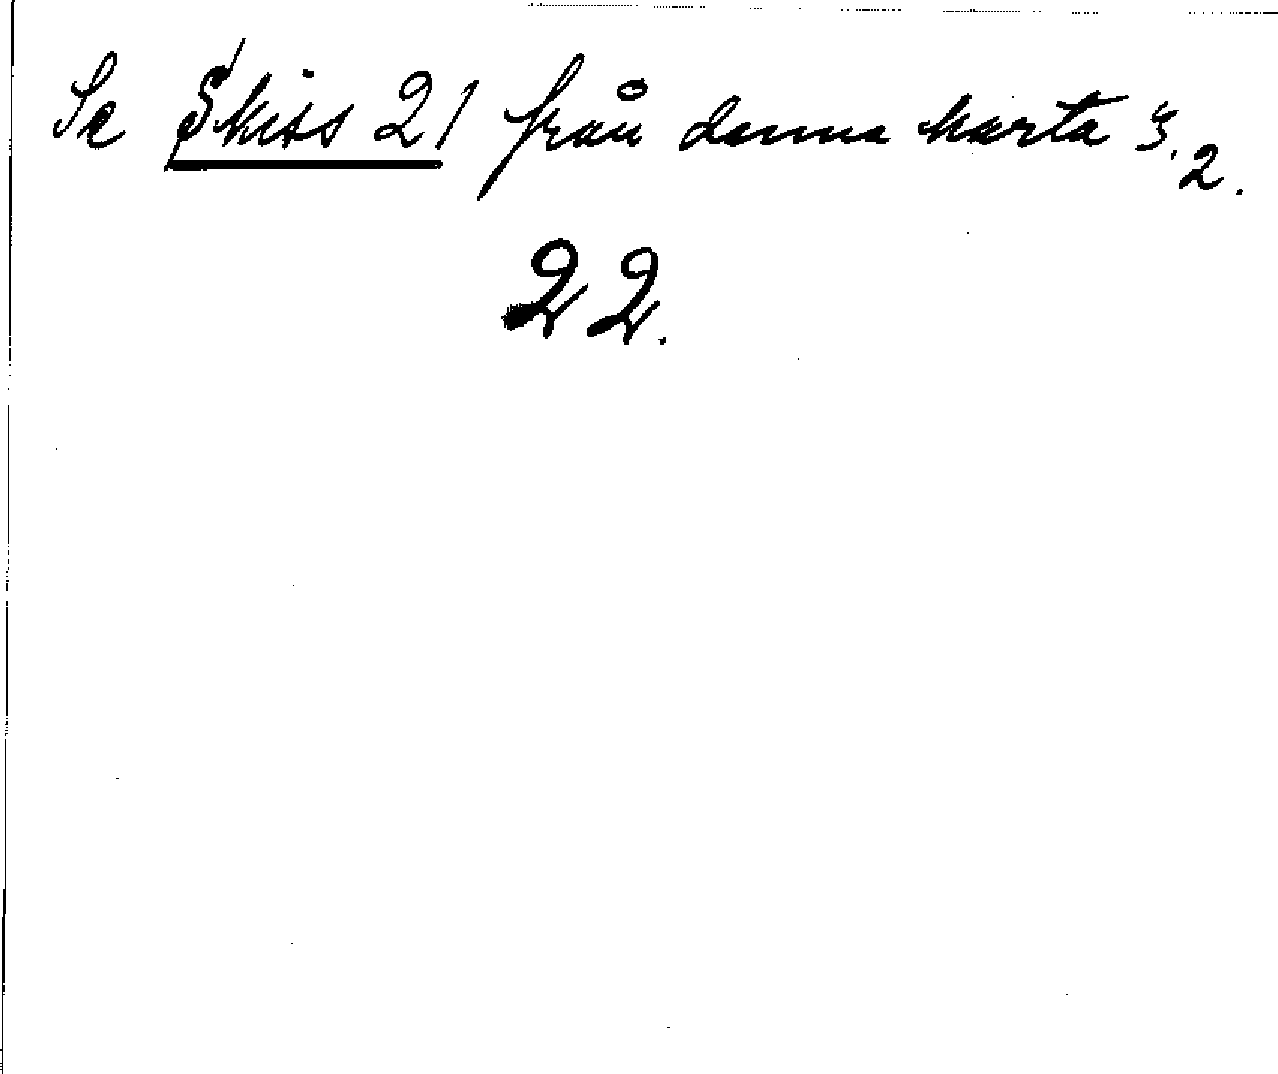 Se Skiss 21 från denna karta 3.2.
22.